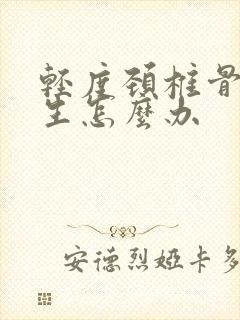 輕度頚椎骨
生怎麼办
安德烈婭卡多